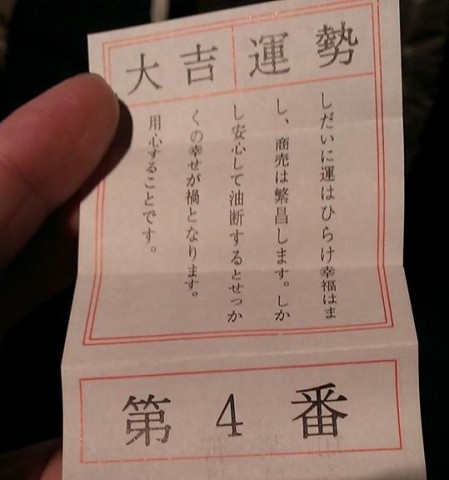 大吉 運勢
しだいに運はひらけ幸福はま
し、商売は繁昌します。しか
し安心して油断するとせっか
くの幸せが禍となります。
用心することです。
第4番